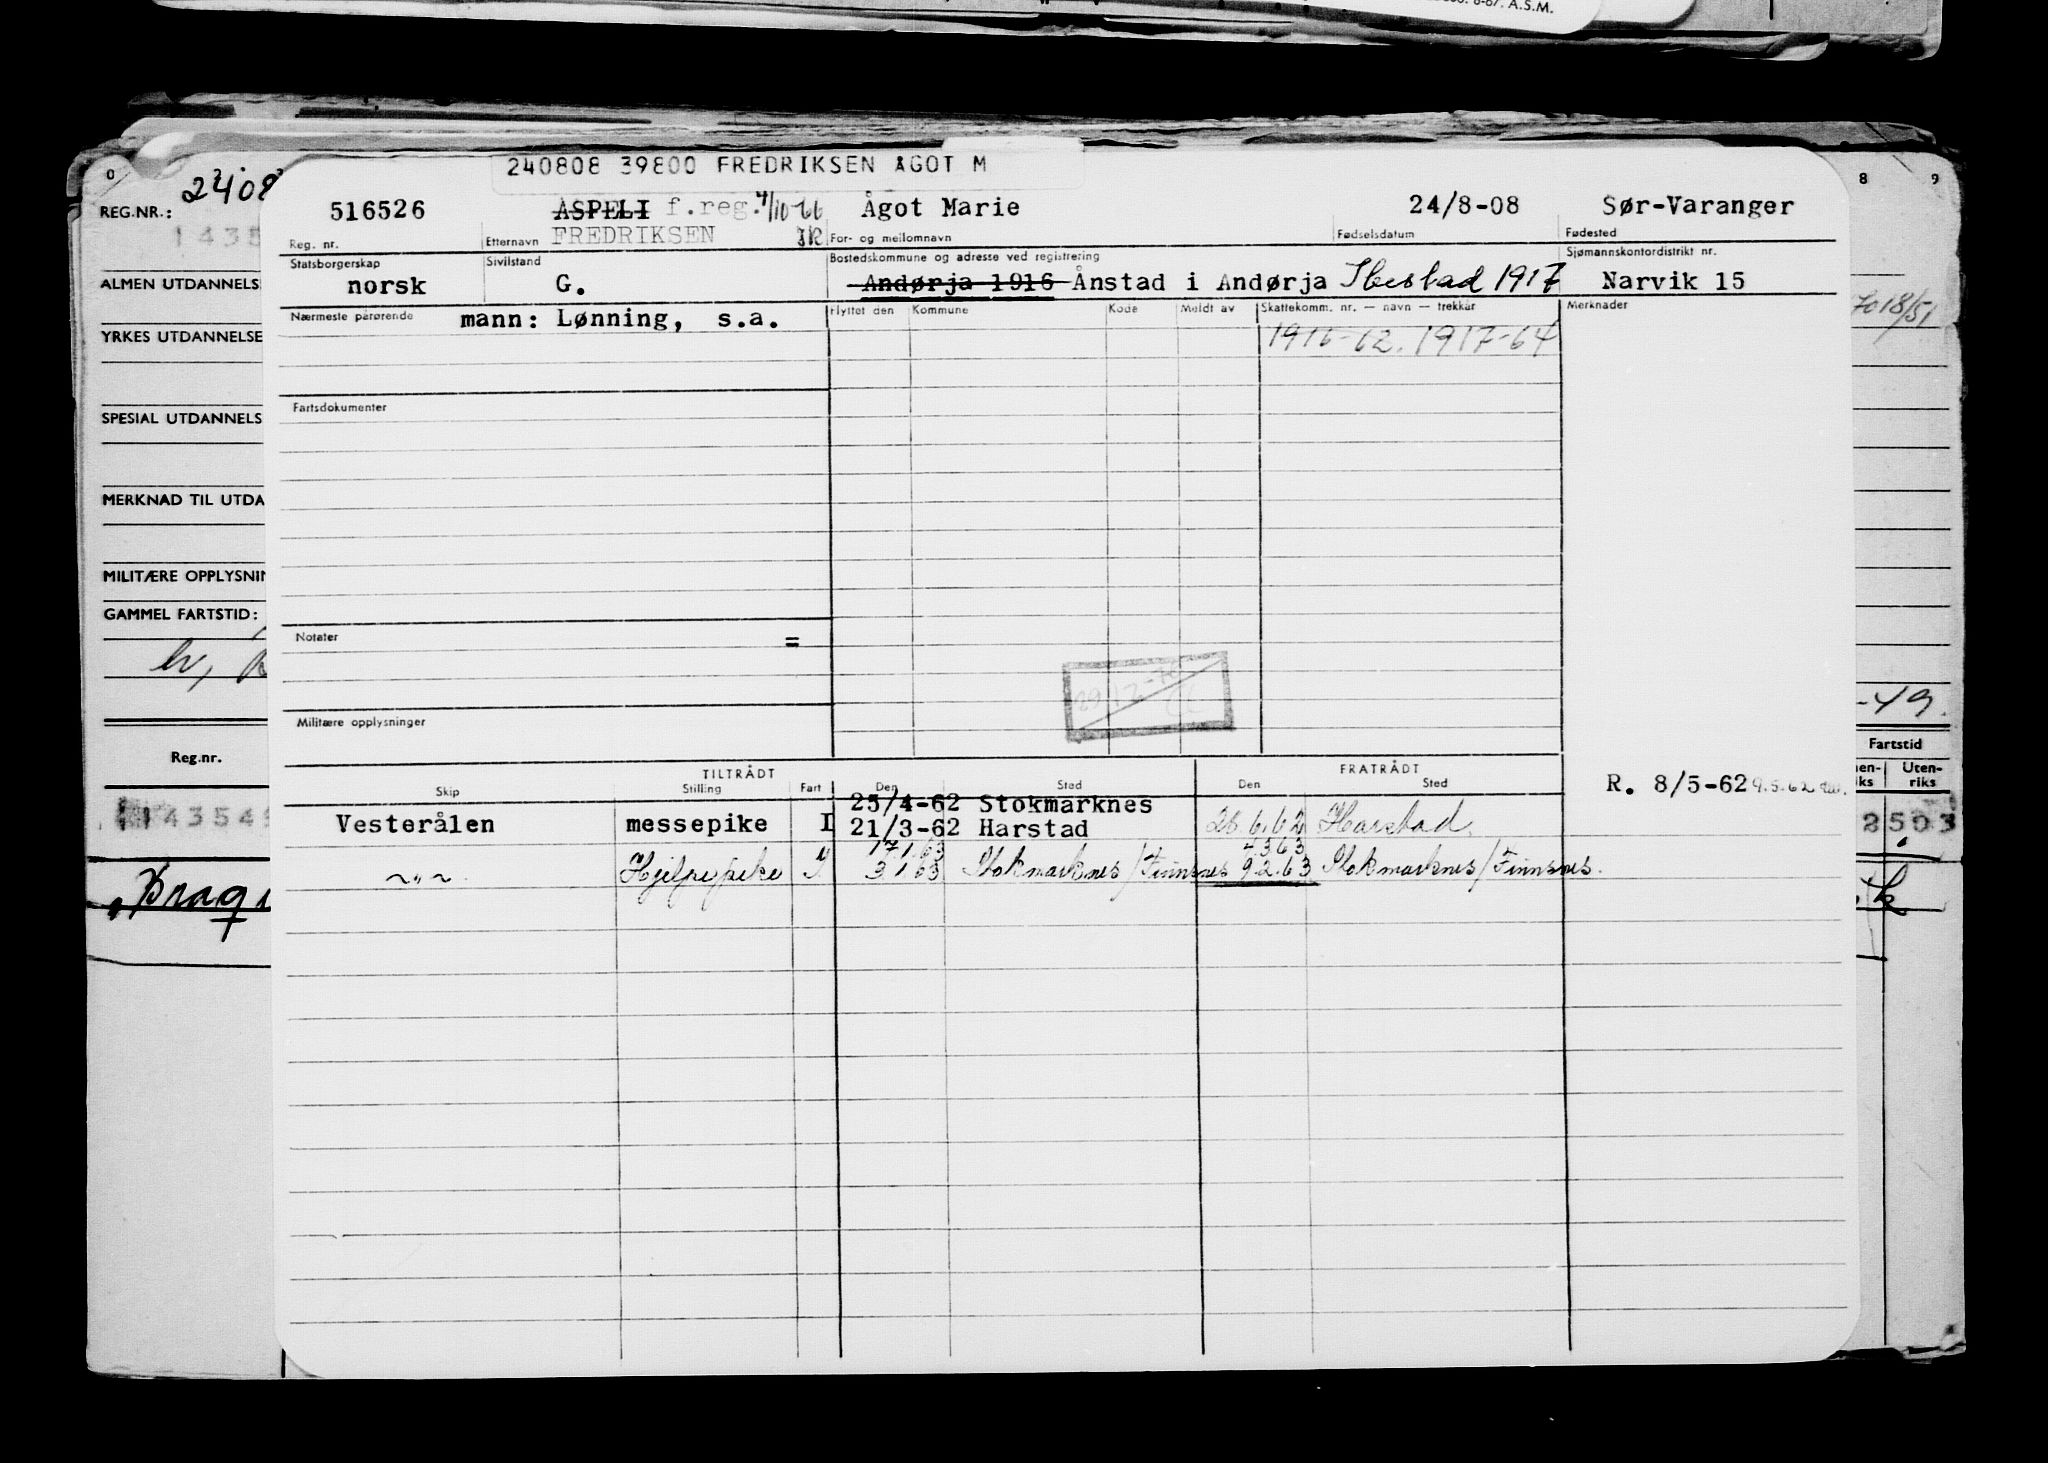 8-67. A.S.M.
240808 39800 FREDRIKSEN ÅGOT M
0 2408 8 9
REG.NR.: 516526 ASPELI f.reg. 4/10-66 Ågot Marie 24/8-08 Sør-Varanger
1435 FREDRIKSEN
Reg. nr. Etternavn For- og mellomnavn Fødselsdatum Fødested
Statsborgerskap Sivilstand Bostedskommune og adresse ved registrering Sjømannskontordistrikt nr.
ALMEN UTDANNELS norsk G. Andørja 1916 Ånstad i Andørja Ibestad 1917 Narvik 15
Nærmeste pårørende mann: Lønning, s.a. Flyttet den Kommune Kode Meldt av Skattekomm. nr. — navn — trekkår Merknader
YRKES UTDANNELSE 1916-62. 1917-64
Fartsdokumenter
SPESIAL UTDANNELS
MERKNAD TIL UTDA
MILITÆRE OPPLYSNIN
GAMMEL FARTSTID:
Notater =
-49.
Militære opplysninger
Reg.nr. Fartstid
TILTRÅDT FRATRÅDT
Skip Stilling Fart Den Sted Den Sted R. 8/5-62 9.5.62
Uten-
riks riks
25/4-62 Stokmarknes
Vesterålen messepike I 21/3-62 Harstad 26.6.62 Harstad.
17.1.63 4.3.63
~"~ Hjelpepike 3.1.63 Stokmarknes/Finnsnes 9.2.63 Stokmarknes/Finnsnes.